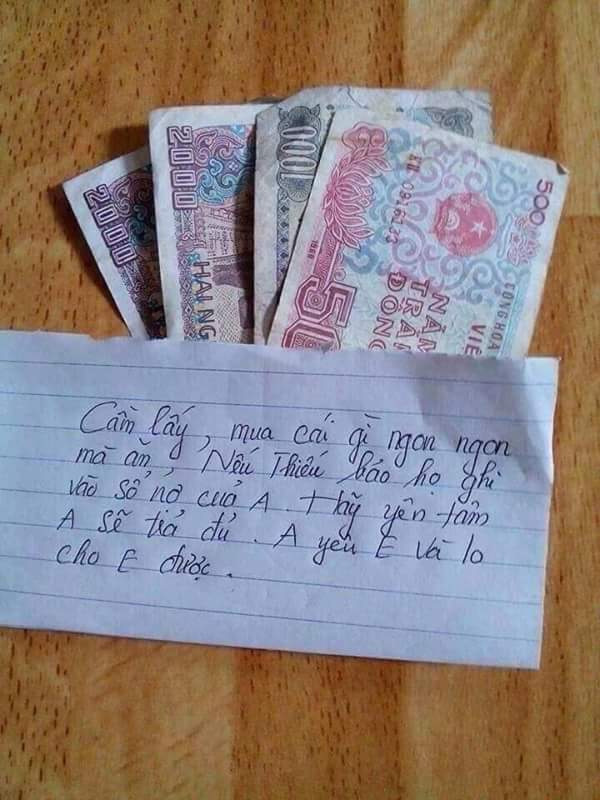 2000
2000
HAI NG
1000
500
KU 0916133
1988
CỘNG HOÀ
VIỆ
NĂM
TRĂM
ĐỒNG
50
Cầm lấy, mua cái gì ngon ngon
mà ăn, Nếu Thiếu báo họ ghi
vào sổ nợ của A. Hãy yên tâm
A sẽ trả đủ. A yêu E và lo
cho E được.